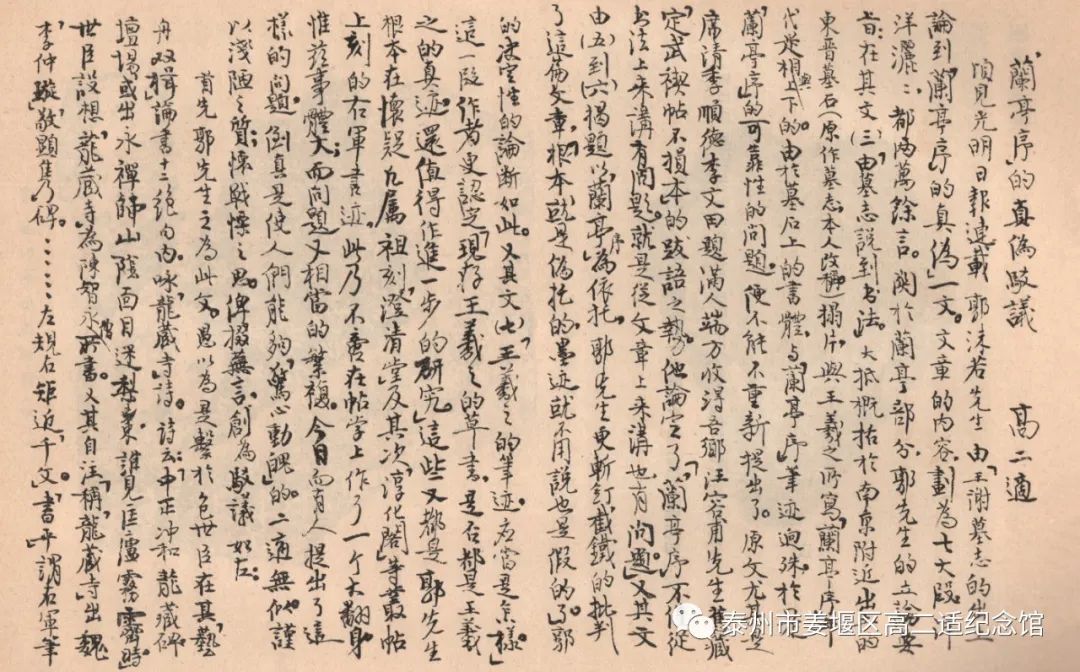 「蘭亭序」的真偽駁議　高二適
頃見光明日報連載郭沫若先生「由王謝墓志的出土
論到「蘭亭序」的真偽」一文。文章的内容，劃為七大段，
洋灑々，都兩萬餘言。関於蘭亭部分，郭先生的立論要
旨：在其文（三）由墓志說到书法。大抵概括於南京附近出土的
東晋墓石（原作墓志，本人改稱）搨片，與王羲之所寫「蘭亭序」年
代是相與上下的。由於墓石上的書體，与「蘭亭序」筆迹迥殊。於是
蘭亭序的可靠性的問題，便不能不重新提出了。原文尤其是
席清李順德李文田題滿人端方收得吾鄉汪容甫先生舊藏
定武禊帖不損本的跋語之勢，他論定了「蘭亭序」不僅從
书法上来講有問題。就是從文章上来講也有問題」。又其文
由（五）到（六）揭題以「蘭亭序」為依托，郭先生更斬釘截鐵的批判
了這篇文章，根本就是偽托的，墨迹就不用說也是假的了」。郭
的决定性的論断如此。又其文（七）、王羲之的筆迹，应當是怎樣。」
這一段，作者更認定「現存王羲之的草書，是否都是王羲
之的真迹，還值得作進一步的研究」。這些又都是郭先生
根本在懷疑凡属祖刻，澄清堂及其次「淳化閣」等叢帖
上刻的右軍書迹。此乃不啻在帖学上作了一个大翻身
惟兹事體大，而問題又相當的繁複。今日而有人提出了這
樣的問題，倒真是使人們能夠「驚心動魄」的。二適無似，謹
以淺陋之質，懷戰慄之思，俾掇蕪言，創為駁議如左：
首先郭先生之為此文。愚以為是繫於包世臣在其「藝
舟双楫」論書十二絕句内，咏「龍藏寺」詩。詩云：「中正冲和龍藏碑，
壇場或出永禪師，山陰面目迷梨棗，誰見匡廬霧霽時。」
世臣設想「龍藏寺」為陳智永僧所書。又其自注，稱「龍藏寺」出魏
李仲璇「敬顯雋」碑。……左規右矩近千文」。「書平謂右軍筆
泰州市姜堰区高二适纪念馆